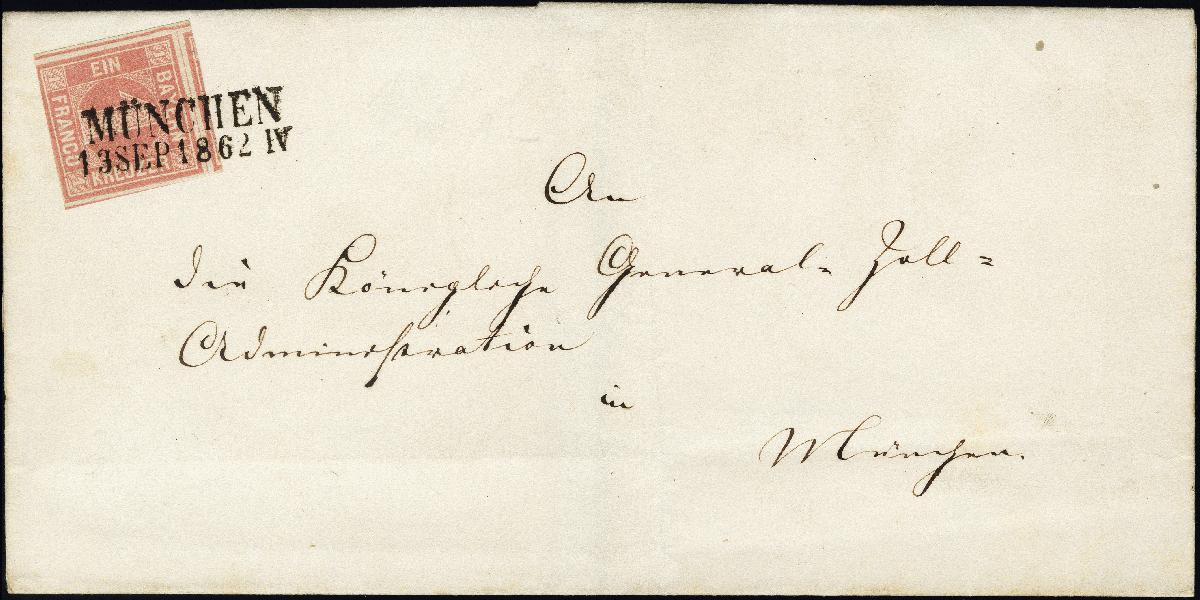 EIN
BAYERN
FRANCO
KREUZER
MÜNCHEN
13 SEP 1862 IV
An
die Königliche General- Zoll=
Administration
in
München.